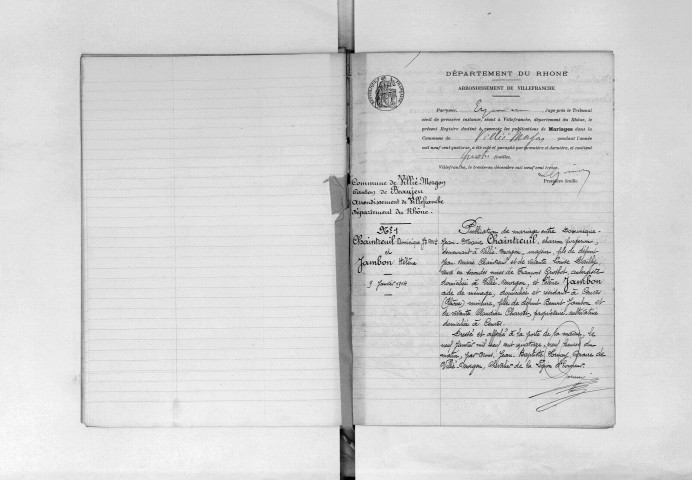 DÉPARTEMENT DU RHÔNE
ARRONDISSEMENT DE VILLEFRANCHE
Par nous, juge près le Tribunal
civil de première instance, séant à Villefranche, département du Rhône, le
présent Registre destiné à contenir les publications de Mariages dans la
Commune de Villié-Morgon pendant l'année
mil neuf cent quatorze, a été coté et paraphé par première et dernière, et contient
feuillets.
Villefranche, le trente un décembre mil neuf cent treize.
Première feuille.
Commune de Villié-Morgon
Canton de Beaujeu
Arrondissement de Villefranche
Département du Rhône.
N° 1
Chaintreuil Dominique Jn Mie
et
Jambon Hélène
9 Janvier 1914
Publication de mariage entre Dominique
Jean-Marie Chaintreuil, charron forgeron,
demeurant à Villié-Morgon, majeur, fils de défunt
Jean Marie Chaintreuil et de vivante Louise
en secondes noces de François
domiciliés à Villié-Morgon, et Hélène Jambon
aide de ménage, domiciliée et résidant à
(Rhône) mineure, fille de défunt Benoit Jambon et
de vivante Claudine propriétaire cultivatrice
domiciliée à
Dressé et affiché à la porte de la mairie, le
neuf Janvier mil neuf cent quatorze, neuf heures du
matin, par nous, Jean-Baptiste maire de
Villié-Morgon, chevalier de la Légion d'honneur.